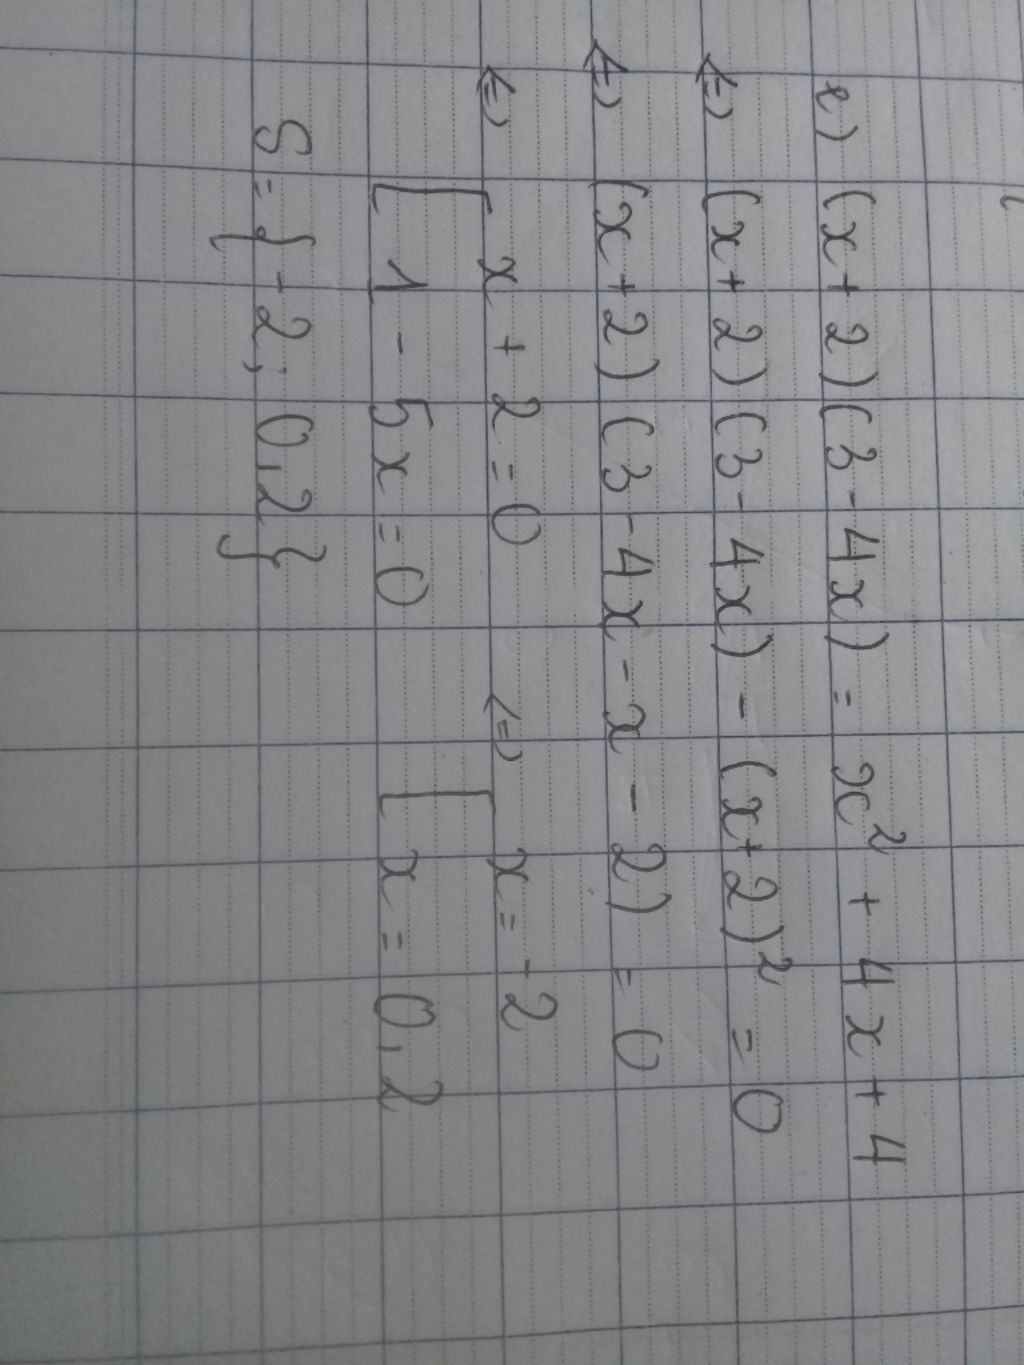 e) (x + 2)(3 - 4x) = x² + 4x + 4
<=> (x + 2)(3 - 4x) - (x + 2)² = 0
<=> (x + 2)(3 - 4x - x - 2) = 0
<=> [ x + 2 = 0 <=> [ x = -2
1 - 5x = 0 x = 0,2
S = { -2; 0,2 }